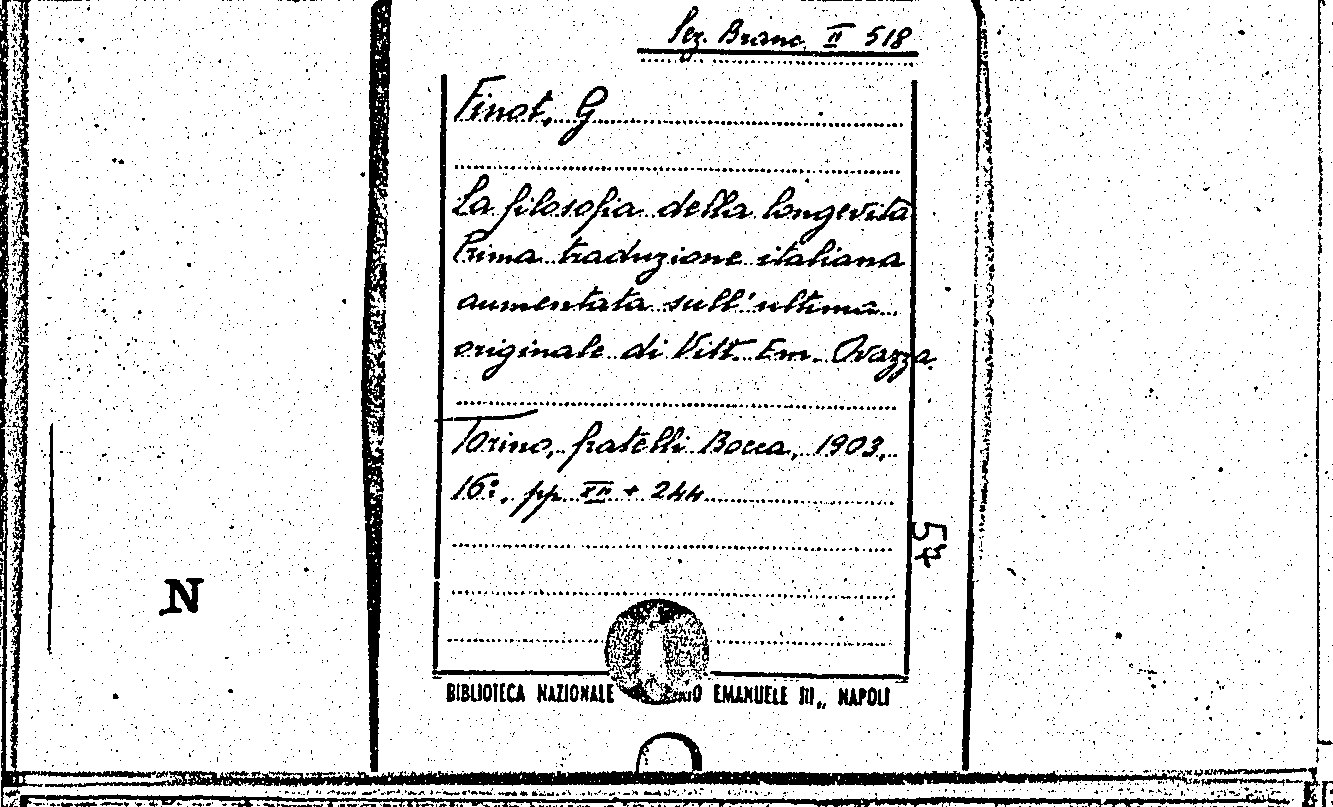 Sez. Branc. II 518
Finot, G
La filosofia della longevità
Prima traduzione italiana
aumentata sull'ultima
originale di Vitt. Em. Ovazza.
Torino, fratelli Bocca, 1903.
16°, pp. XII + 244
54
N
BIBLIOTECA NAZIONALE EMANUELE III„ NAPOLI